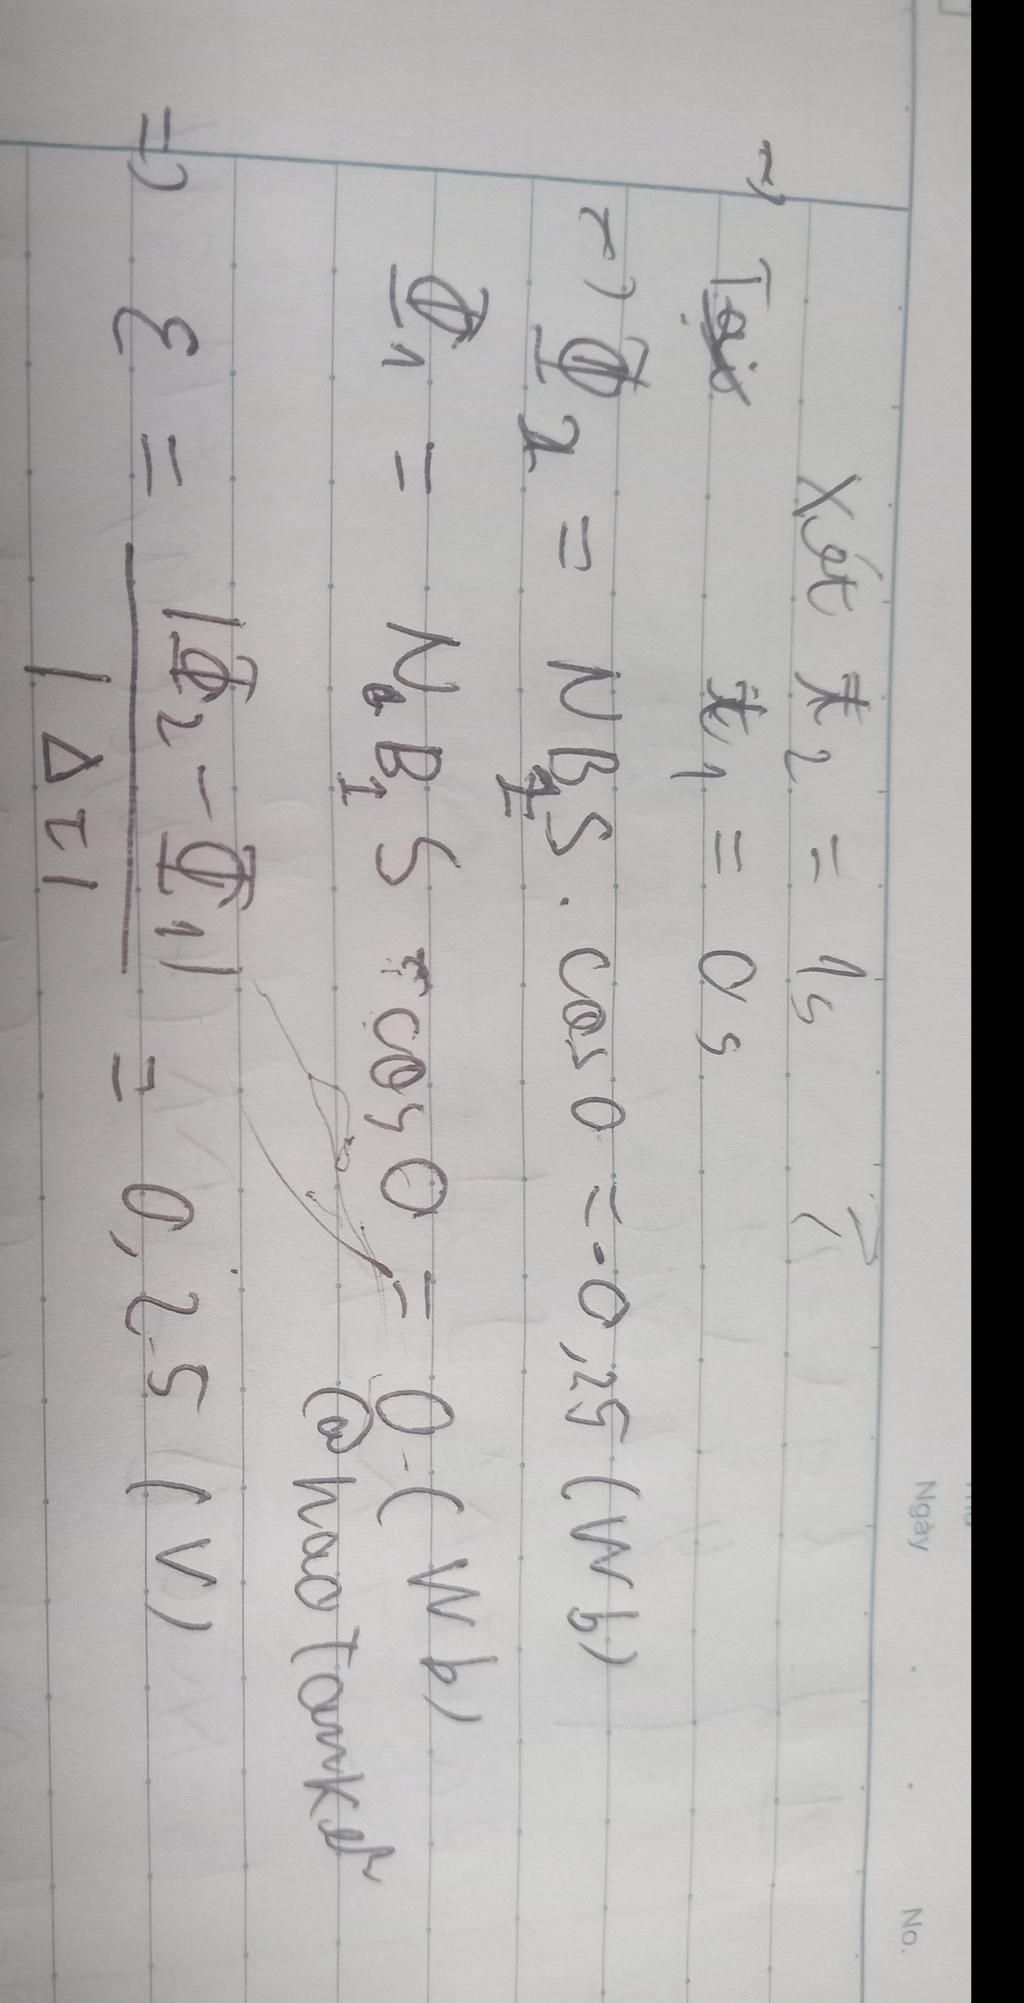 Ngày
No.
Xét t₂ = 1s
t₁ = 0s
=> Φ₂ = NB₂S . cos 0 = -0,25 (Wb)
Φ₁ = N B₁ S cos 0 = 0 (Wb)
@haoTanker
=> ε = |Φ₂ - Φ₁| / |Δt| = 0,25 (V)